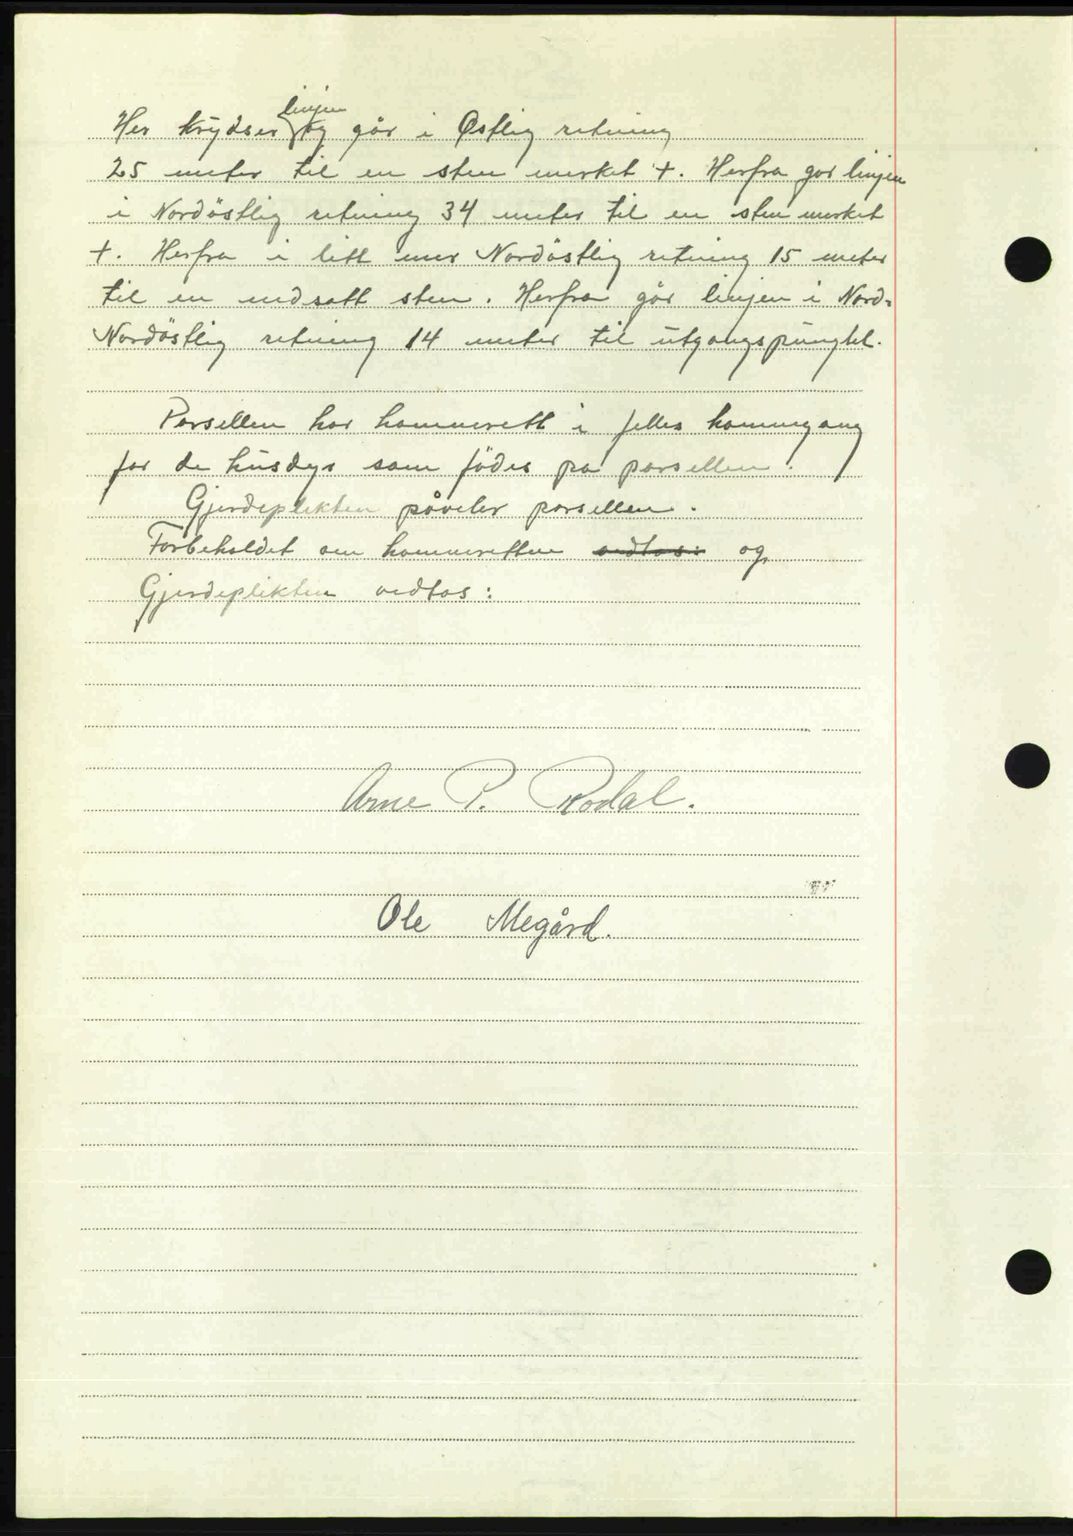 Her krydser linjen og går i Østlig retning
25 meter til en sten merket +. Herfra går linjen
i Nordöstlig retning 34 meter til en sten merket
+. Herfra i litt mer Nordöstlig retning 15 meter
til en nedsatt sten. Herfra går linjen i Nord-
Nordöstlig retning 14 meter til utgangspungtet.
Parsellen har hamnerett i felles hamnegang
for de husdyr som födes på parsellen.
Gjerdeplikten påviler parsellen.
Forbeholdet om hamneretten vedtas: og
Gjerdeplikten vedtas:
Arne P. Rodal.
Ole Megård.